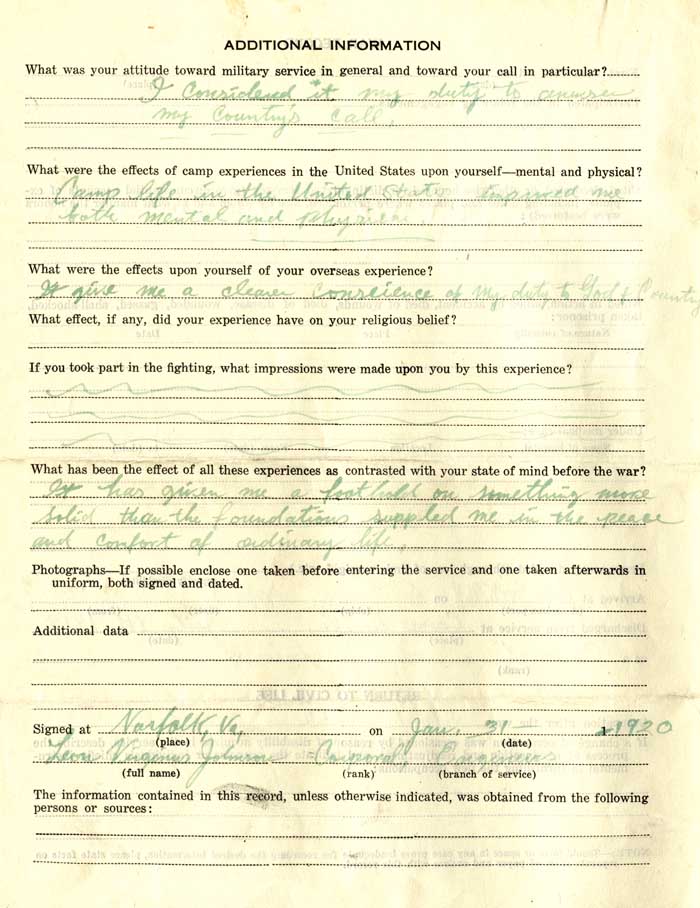 ADDITIONAL INFORMATION
What was your attitude toward military service in general and toward your call in particular?
I Considerd it my duty to answer
my Country's Call.
What were the effects of camp experiences in the United States upon yourself—mental and physical?
Camp life in the United States improved me
both mental and physical
What were the effects upon yourself of your overseas experience?
It give me a clearer Conscience of my duty to God & Country
What effect, if any, did your experience have on your religious belief?
If you took part in the fighting, what impressions were made upon you by this experience?
What has been the effect of all these experiences as contrasted with your state of mind before the war?
It has given me a foothold on something more
solid than the foundations suppled me in the peace
and confort of ordinary life.
Photographs—If possible enclose one taken before entering the service and one taken afterwards in
uniform, both signed and dated.
Additional data
Signed at Norfolk, Va, on Jan. 31 1920
(place) (date)
Leon Virginius Johnson Corporal Engineers
(full name) (rank) (branch of service)
The information contained in this record, unless otherwise indicated, was obtained from the following
persons or sources:
RETURN TO CIVIL LIFE